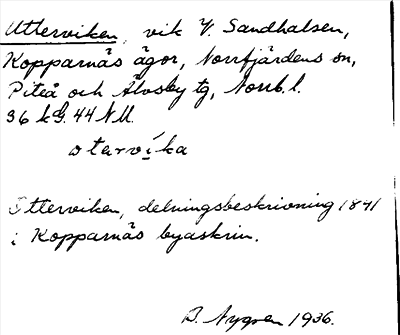 Utterviken, vik V. Sandhalsen,
Kopparnäs ägor, Norrfjärdens sn,
Piteå och Älvsby tg, Norrb. l.
36 kG. 44 NU.
otarvíka
Otterviken, delningsbeskrivning 1841
i Kopparnäs byaskrin.
B. Nygren 1936.